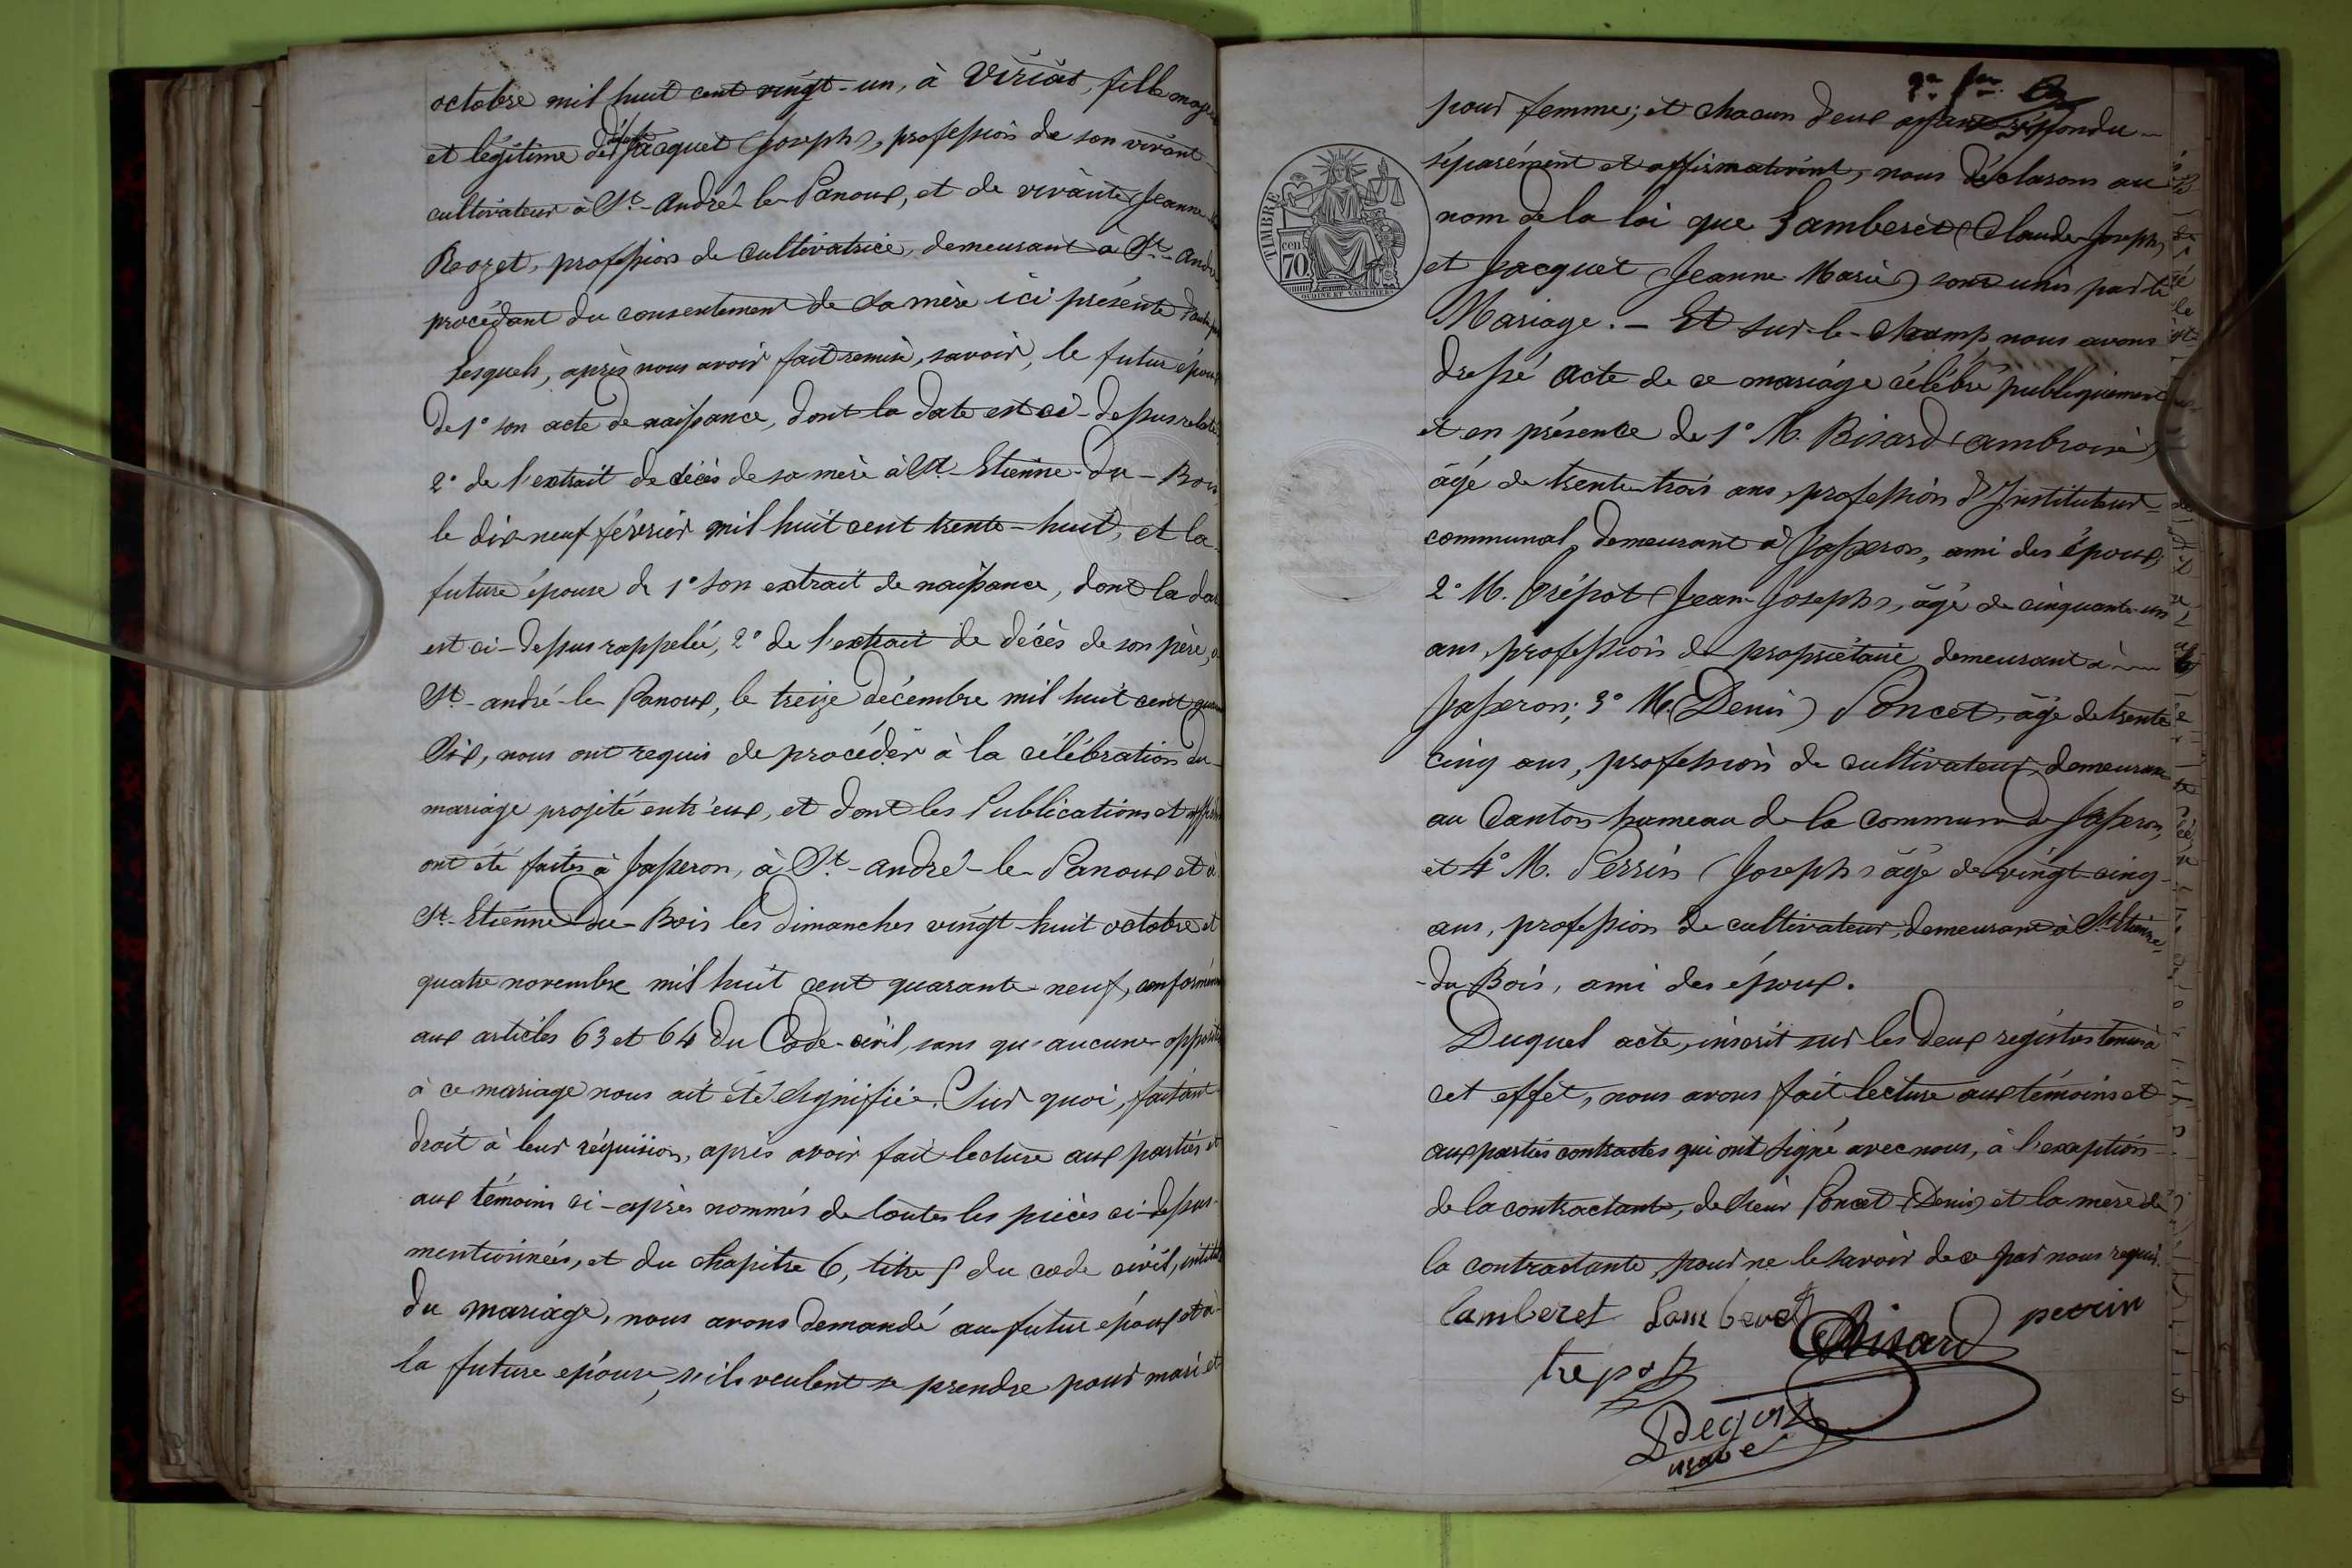 octobre mil huit cent vingt-un, à Viriat, fille majeu
et légitime de défunt Jacquet (Joseph), profession de son vivant
cultivateur à St-André-le-Panoux, et de vivante Jeanne
Rozet, profession de cultivatrice, demeurant à St-André
procédant du consentement de sa mère ici présente d'autre part
Lesquels, après nous avoir fait remise, savoir, le futur époux
de 1° son acte de naissance, dont la date est ci-dessus relatée
2° de l'extrait de décès de sa mère à St-Etienne-du-Bois
le dix-neuf février mil huit cent trente-huit, et la
future épouse de 1° son extrait de naissance, dont la date
est ci-dessus rappelée, 2° de l'extrait de décès de son père, à
St-andré-le-Panoux, le treize décembre mil huit cent quarante
six, nous ont requis de procéder à la célébration du
mariage projeté entr'eux, et dont les Publications et affiches
ont été faites à Jasseron, à St-andré-le-Panoux et à
St-Etienne-du-Bois les dimanches vingt-huit octobre et
quatre novembre mil huit cent quarante-neuf, conformément
aux articles 63 et 64 du Code-civil, sans qu'aucune opposition
à ce mariage nous ait été signifiée. Sur quoi, faisant
droit à leur réquision, après avoir fait lecture aux parties et
aux témoins ci-après nommés de toutes les pièces ci-dessus
mentionnées, et du chapitre 6, titre 5 du code civil, intitulé
du mariage, nous avons demandé au futur époux et à
la future épouse, s'ils veulent se prendre pour mari et
pour femme; et chacun d'eux ayant répondu
séparément et affirmativint, nous déclarons au
nom de la loi que Lamberet (Claude-Joseph)
et Jacquet (Jeanne Marie) sont unis par le
Mariage. - Et sur-le-champ nous avons
dressé acte de ce mariage célébré publiquement
et en présence de 1° M. Bisard (ambroise)
âgé de trente-trois ans, profession d'Instituteur
communal, demeurant à Jasseron, ami des époux;
2° M. Trépot (Jean-Joseph), âgé de cinquante-un
ans, profession de propriétaire, demeurant à
Jasseron; 3° M. (Denis) Poncet, âgé de trente
cinq ans, profession de cultivateur, demeurant
au Canton hameau de la commune de Jasseron,
et 4° M. Perrin (Joseph) âgé de vingt-cinq
ans, profession de cultivateur, demeurant à St-Etienne-
-du Bois, ami des époux.
Duquel acte, inscrit sur les deux registres tenus à
cet effet, nous avons fait lecture aux témoins et
aux parties contractes qui ont signé avec nous, à l'exception
de la contractante, de Sieur Poncet (Denis) et la mère de
la contractante, pour ne le savoir de ce par nous requis.
TIMBRE
70 cen
OUDINE ET VAUTHIER
lamberet Lamberet Bisard perrin
trepot